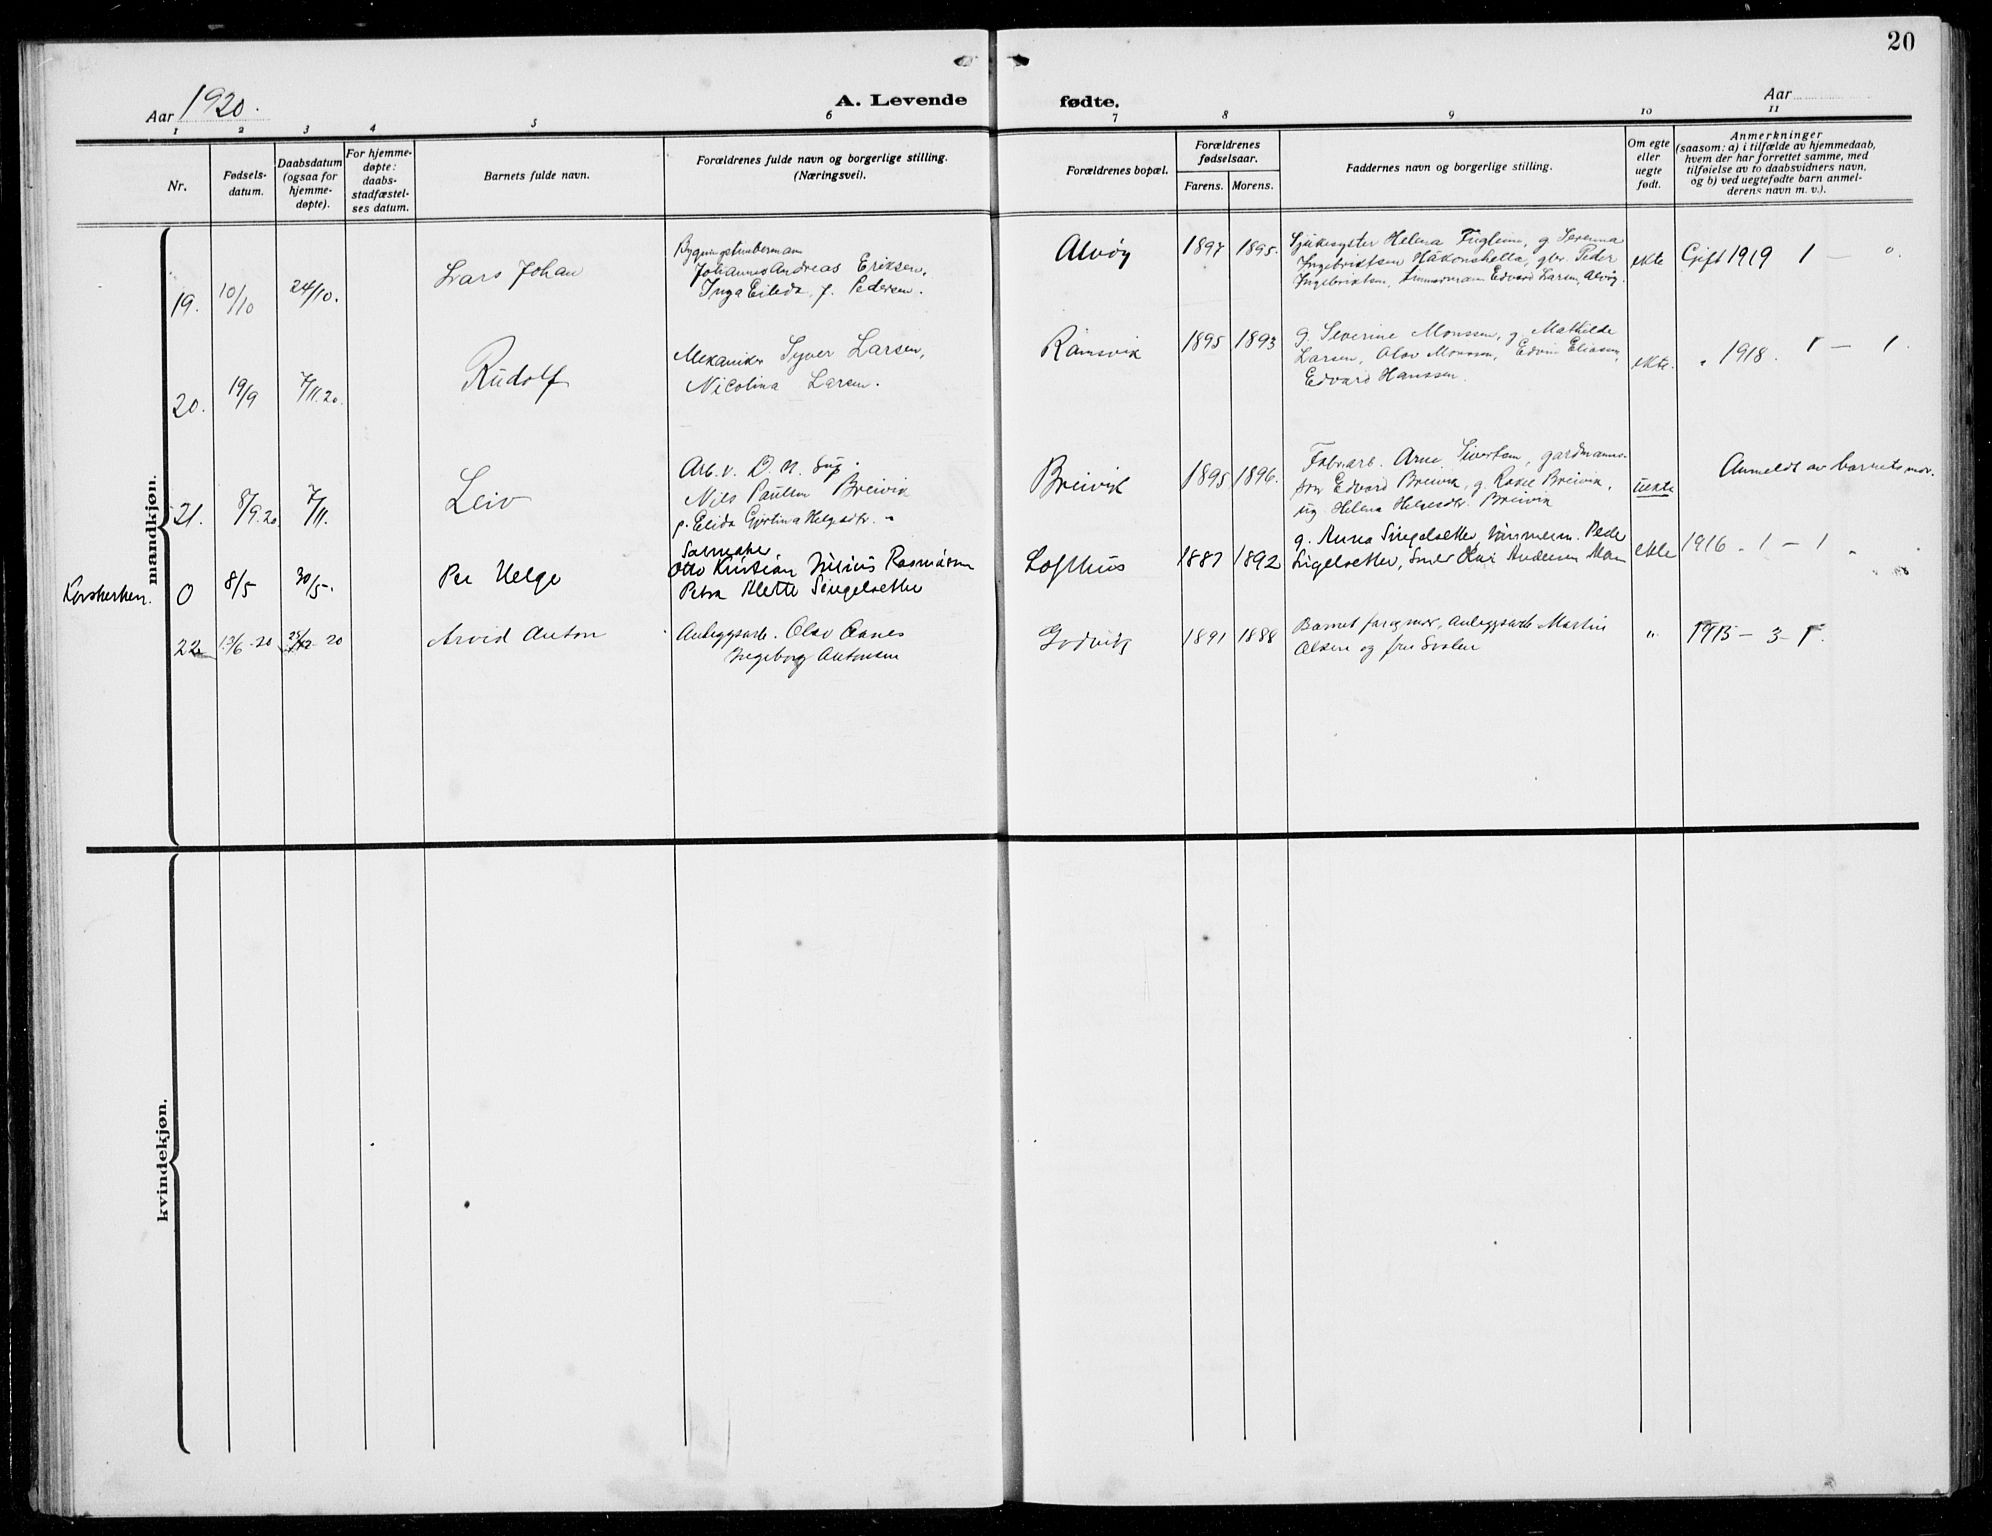 20
Aar 1920.
A. Levende fødte.
Aar
1 2 3 4 5 6 7 8 9 10 11
Nr.
Fødsels-
datum.
Daabsdatum
(ogsaa for
hjemme-
døpte).
For hjemme-
døpte:
daabs-
stadfæstel-
ses datum.
Barnets fulde navn.
Forældrenes fulde navn og borgerlige stilling.
(Næringsvei).
Forældrenes bopæl.
Forældrenes
fødselsaar.
Farens. Morens.
Faddernes navn og borgerlige stilling.
Om egte
eller
uegte
født.
Anmerkninger
(saasom: a) i tilfælde av hjemmedaab,
hvem der har forrettet samme, med
tilføielse av to daabsvidners navn,
og b) ved uegtefødte barn anmel-
derens navn m. v.).
mandkjøn.
19. 10/10 24/10. Lars Johan
Bygningstømbermann
Johannes Andreas Eriksen,
Inga Elida, f. Pedersen.
Alvøy 1897 1895.
Sjukesyster Helena Fuglem, g. Severina
Ingebriktsen Håkonshella, gbr. Peder
Ingebriktsen, Edvard Larsen, Alvøy.
ekte Gift 1919 1 — 0.
20. 19/9 7/11.20. Rudolf
Mekaniker Syver Larsen,
Nicolina Larsen.
Ramsvik 1895 1893
g. Severine Monssen, g. Mathilde
Larsen, Olav Monssen, Edvin Eliasen,
Edvard Hanssen.
ekte. " 1918. 1 — 1.
21. 8/9.20 7/11. Leiv
Arb. v. D. N.
Nils Paulsen Breivik
p. Elida Gjertina Helgesdtr. "
Breivik 1895 1896.
Fabr.arb. Arne Sivertsen, gardmanns-
son Edvard Breivik, g. Rakel Breivik,
ug. Helena Helgesdtr. Breivik
uekte Anmeldt av barnets mor.
Korskirken. 0 8/5 30/5. Per Helge
Salmaker
Otto Kristian Julius Rasmussen
Petra Alette Singelsetter
Lofthus 1887 1892
g. Anna Singelsetter, tømmerm. Peder
Singelsetter, Andersen
ekte 1916 - 1 — 1
22 13/6 - 20 20 Arvid Anton
Anleggsarb. Olav Aanes
Ingeborg Antonsen
Godvik 1891 1888
Barnets far og mor, Anleggsarb. Martin
Olsen og fru
" 1915 — 3 — 1.
kvindekjøn.